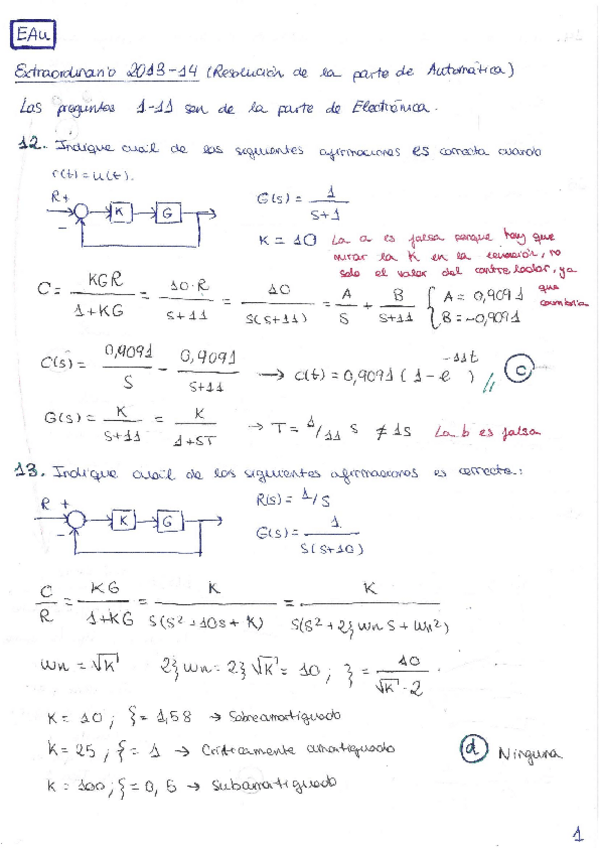 EAu
Extraordinario 2013-14 (Resolución de la parte de Automática)
Las preguntas 1-11 son de la parte de Electrónica.
12. Indique cual de las siguientes afirmaciones es correcta cuando
r(t)=u(t).
R + - K G
G(s) = 1/(s+1)
K = 10 La a es falsa porque hay que
mirar la K en la ecuación, no
solo el valor del controlador, ya
que cambia
C = KGR/(1+KG) = 10·R/(s+11) = 10/(s(s+11)) = A/s + B/(s+11) { A = 0,9091 B = -0,9091
C(s) = 0,9091/s - 0,9091/(s+11) → c(t) = 0,9091 (1-e^-11t) // c
G(s) = K/(s+11) = K/(1+sT) → T = 1/11 s ≠ 1s La b es falsa
13. Indique cual de las siguientes afirmaciones es correcta.:
R + - K G
R(s) = 1/s
G(s) = 1/(s(s+10))
C/R = KG/(1+KG) = K/(s(s²+10s+K)) = K/(s(s²+2ξwn s+wn²))
wn = √K 2ξwn = 2ξ√K = 10; ξ = 10/(√K·2)
K = 10; ξ = 1,58 → Sobreamortiguado
K = 25; ξ = 1 → Críticamente amortiguado
d Ninguna
K = 100; ξ = 0,5 → Subamortiguado
1